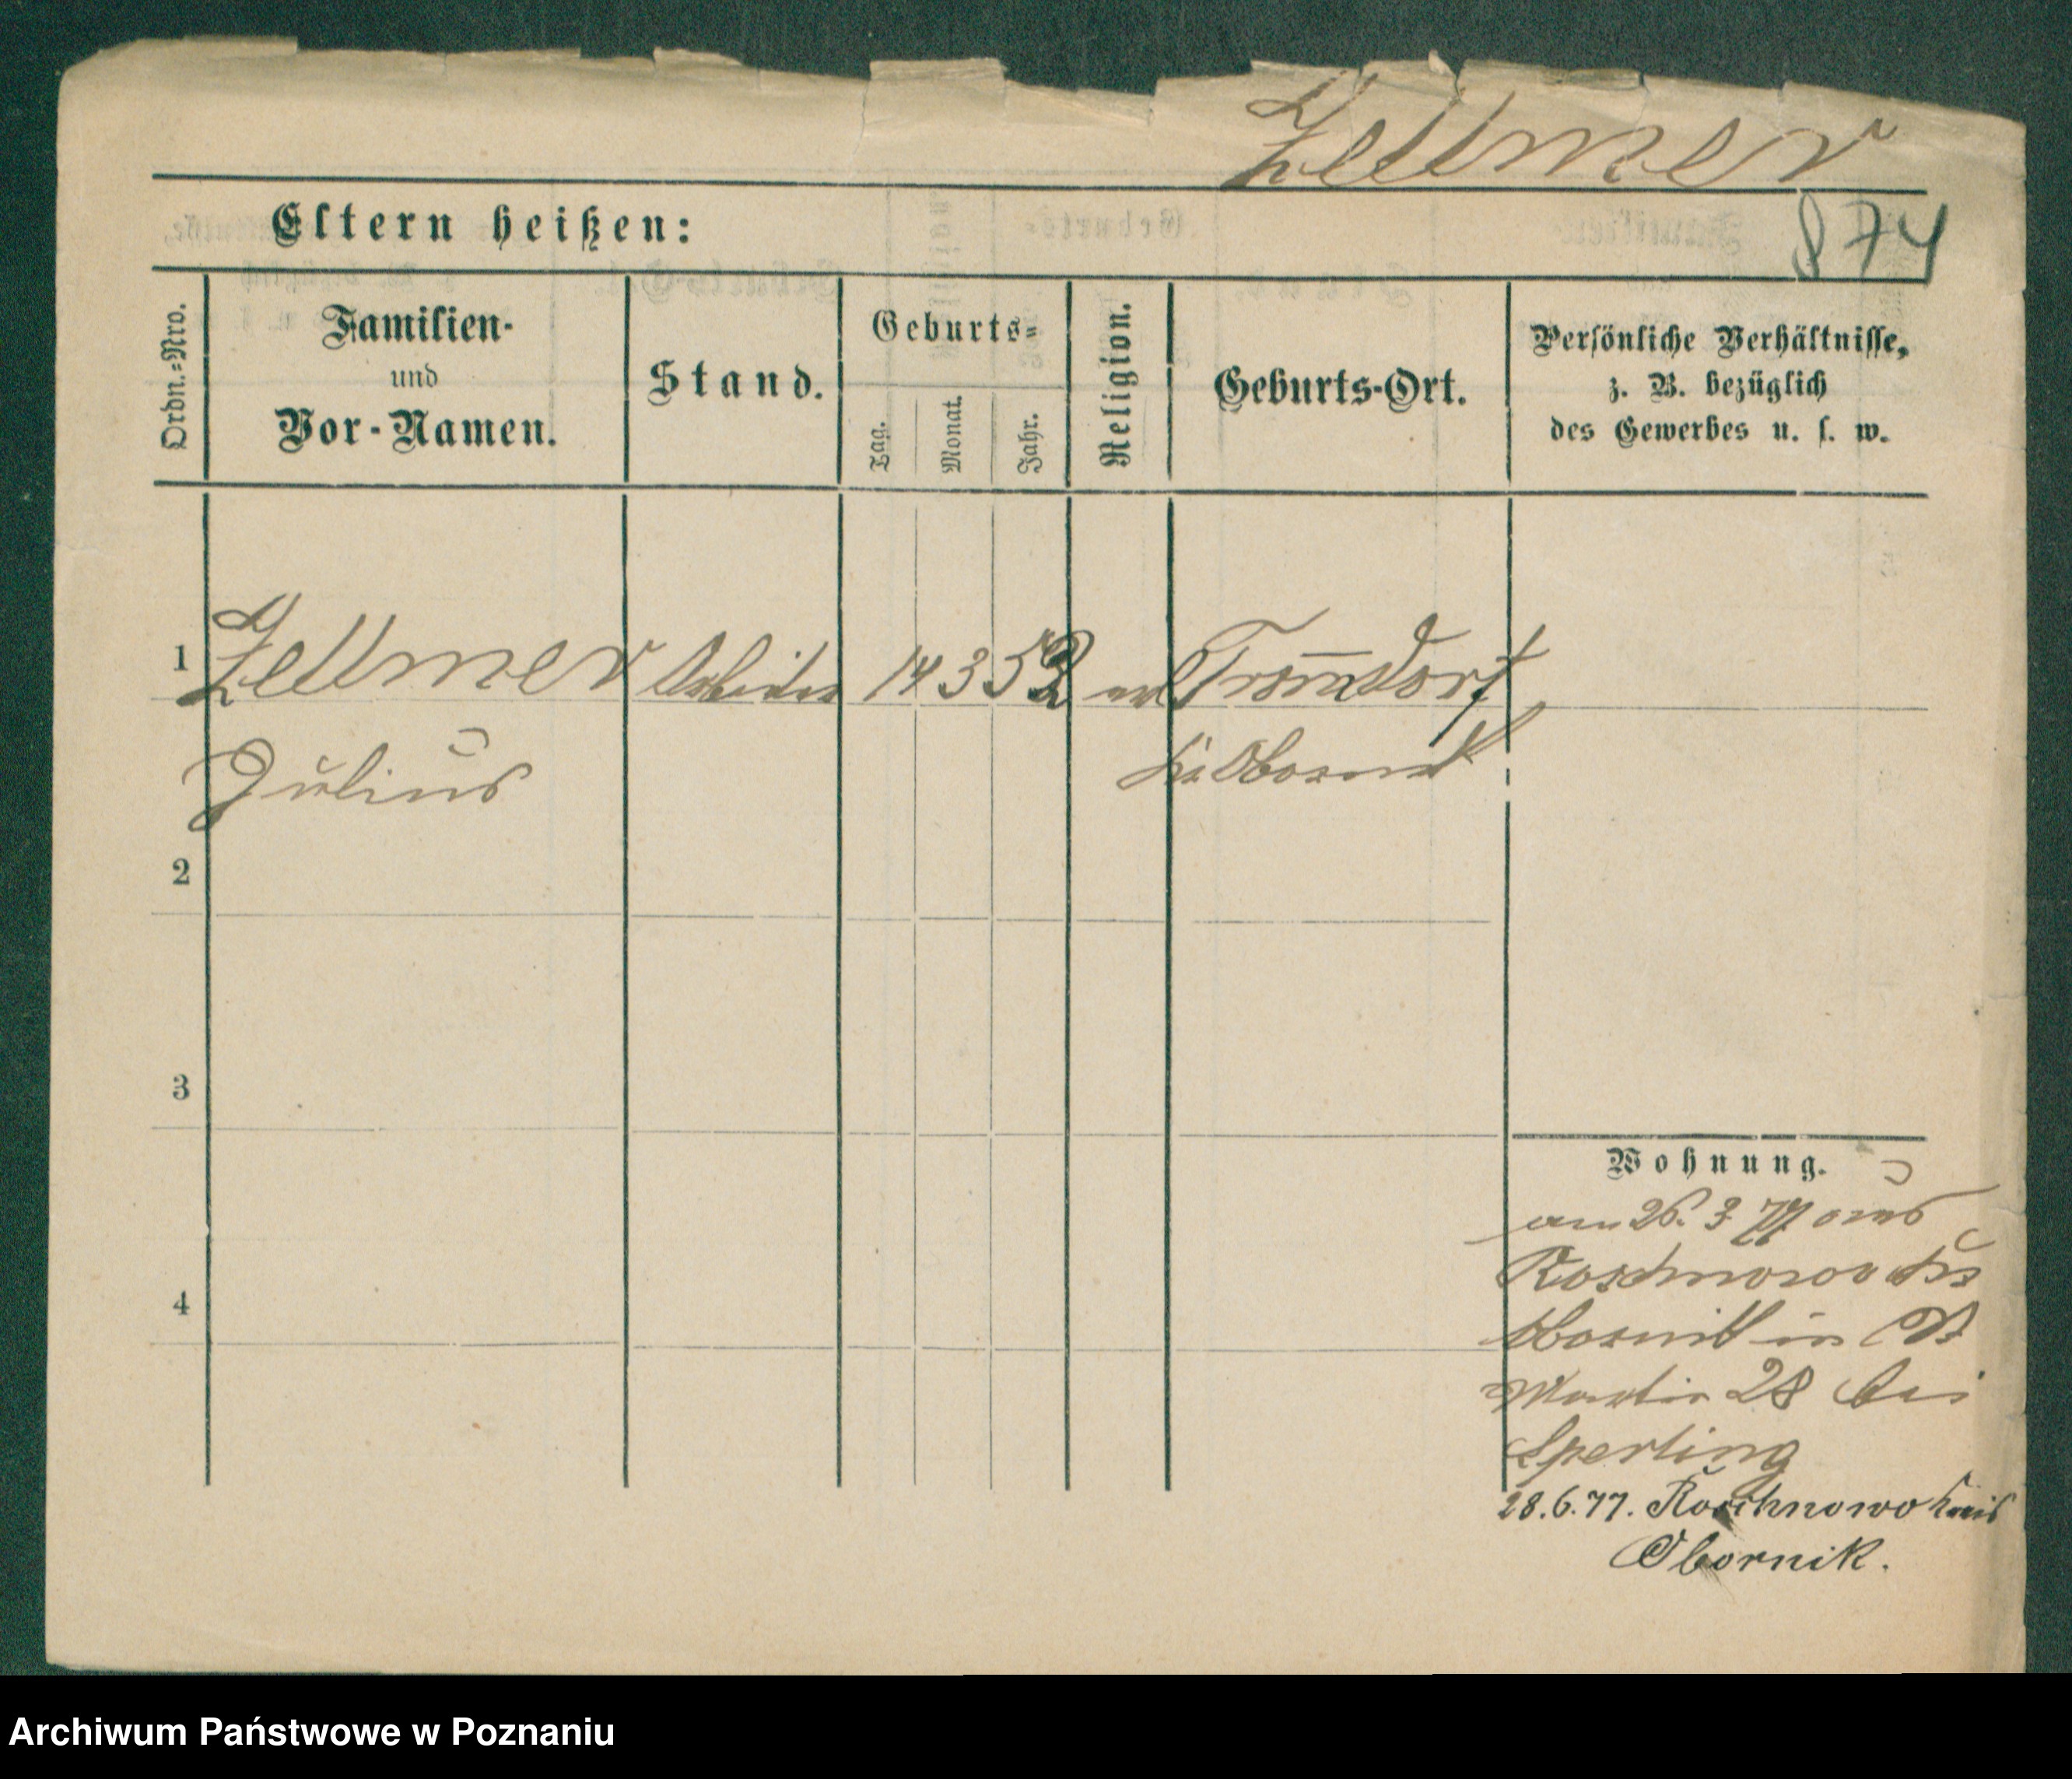 Zellmer
874
Eltern heißen:
Ordn.-Nro.
Familien-
und
Vor-Namen.
Stand.
Geburts-
Tag.
Monat.
Jahr.
Religion.
Geburts-Ort.
Persönliche Verhältnisse,
z. B. bezüglich
des Gewerbes u. s. w.
1 Zellmer Arbeiter 14 3 52 Tromdorf
Julius Kr Obornik
2
3
4
Wohnung.
am 26. 3 77 aus
Roschnowo Krs
Obornik in St
Martin 28 bei
Sperling
28.6.77. Roschnowo Kreis
Obornik.
Archiwum Państwowe w Poznaniu